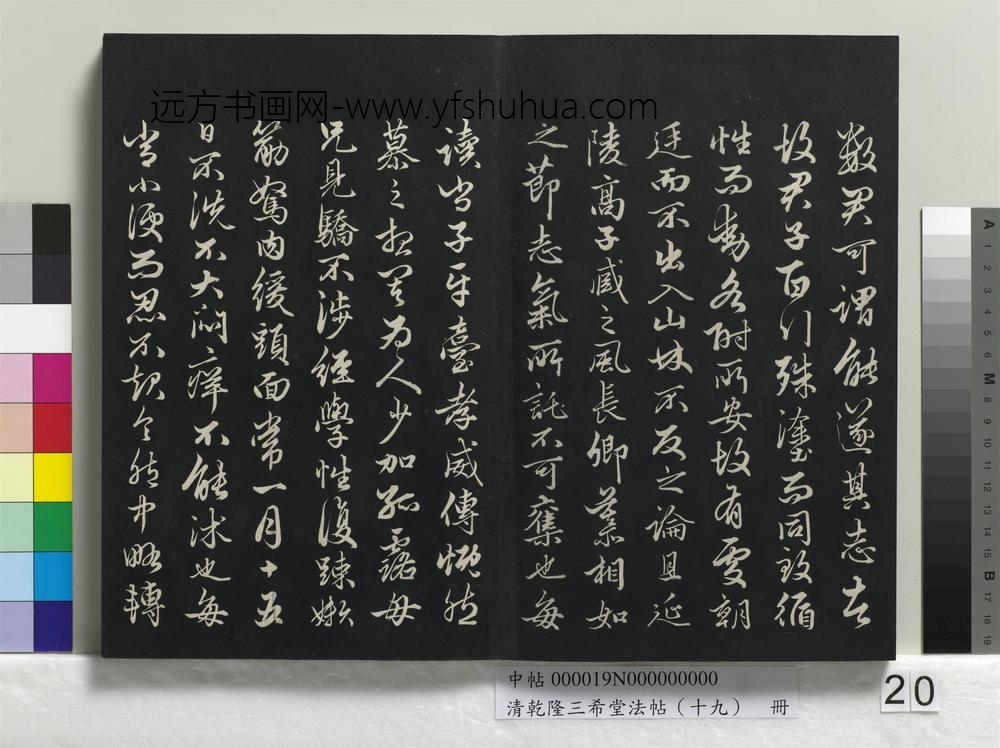 远方书画网-www.yfshuhua.com
數君可謂能遂其志者
故君子百行殊塗而同致循
性而動各附所安故有處朝
廷而不出入山林不反之論且延
陵高子臧之風長卿慕相如
之節志氣所託不可奪也每
讀尚子平臺孝威傳慨然
慕之想其為人少加孤露母
兄見驕不涉經學性復疎嬾
筋駑肉緩頭面常一月十五
日不洗不大悶癢不能沐也每
當小便而忍不起令胞中略轉
中帖 000019N000000000
清乾隆三希堂法帖（十九） 冊
20
A 1 2 3 4 5 6 M 8 9 10 11 12 13 14 15 B 17 18 19